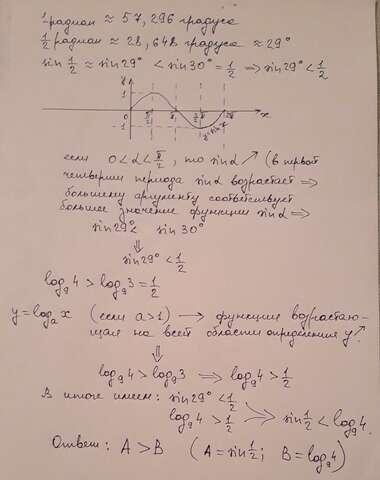 1 радиан ≈ 57,296 градуса
1/2 радиан ≈ 28,648 градуса ≈ 29°
sin 1/2 ≈ sin29° < sin30° = 1/2 ⇒ sin29° < 1/2
y
1
-1
π/2
π
3/2 π
2π
x
y=sin x
если 0<α<π/2, то sinα↗ (в первой
четверти периода sinα возрастает ⇒
большему аргументу соответствует
большее значение функции sinα ⇒
sin29° < sin30°
⇓
sin29° < 1/2
log₉4 > log₉3 = 1/2
y = logₐx (если a>1) → функция возрастаю-
щая на всей области определения y↗
⇓
log₉4 > log₉3 ⇒ log₉4 > 1/2
В итоге имеем: sin29° < 1/2
log₉4 > 1/2 ⇒ sin 1/2 < log₉4.
Ответ: A > B (A = sin 1/2; B = log₉4)